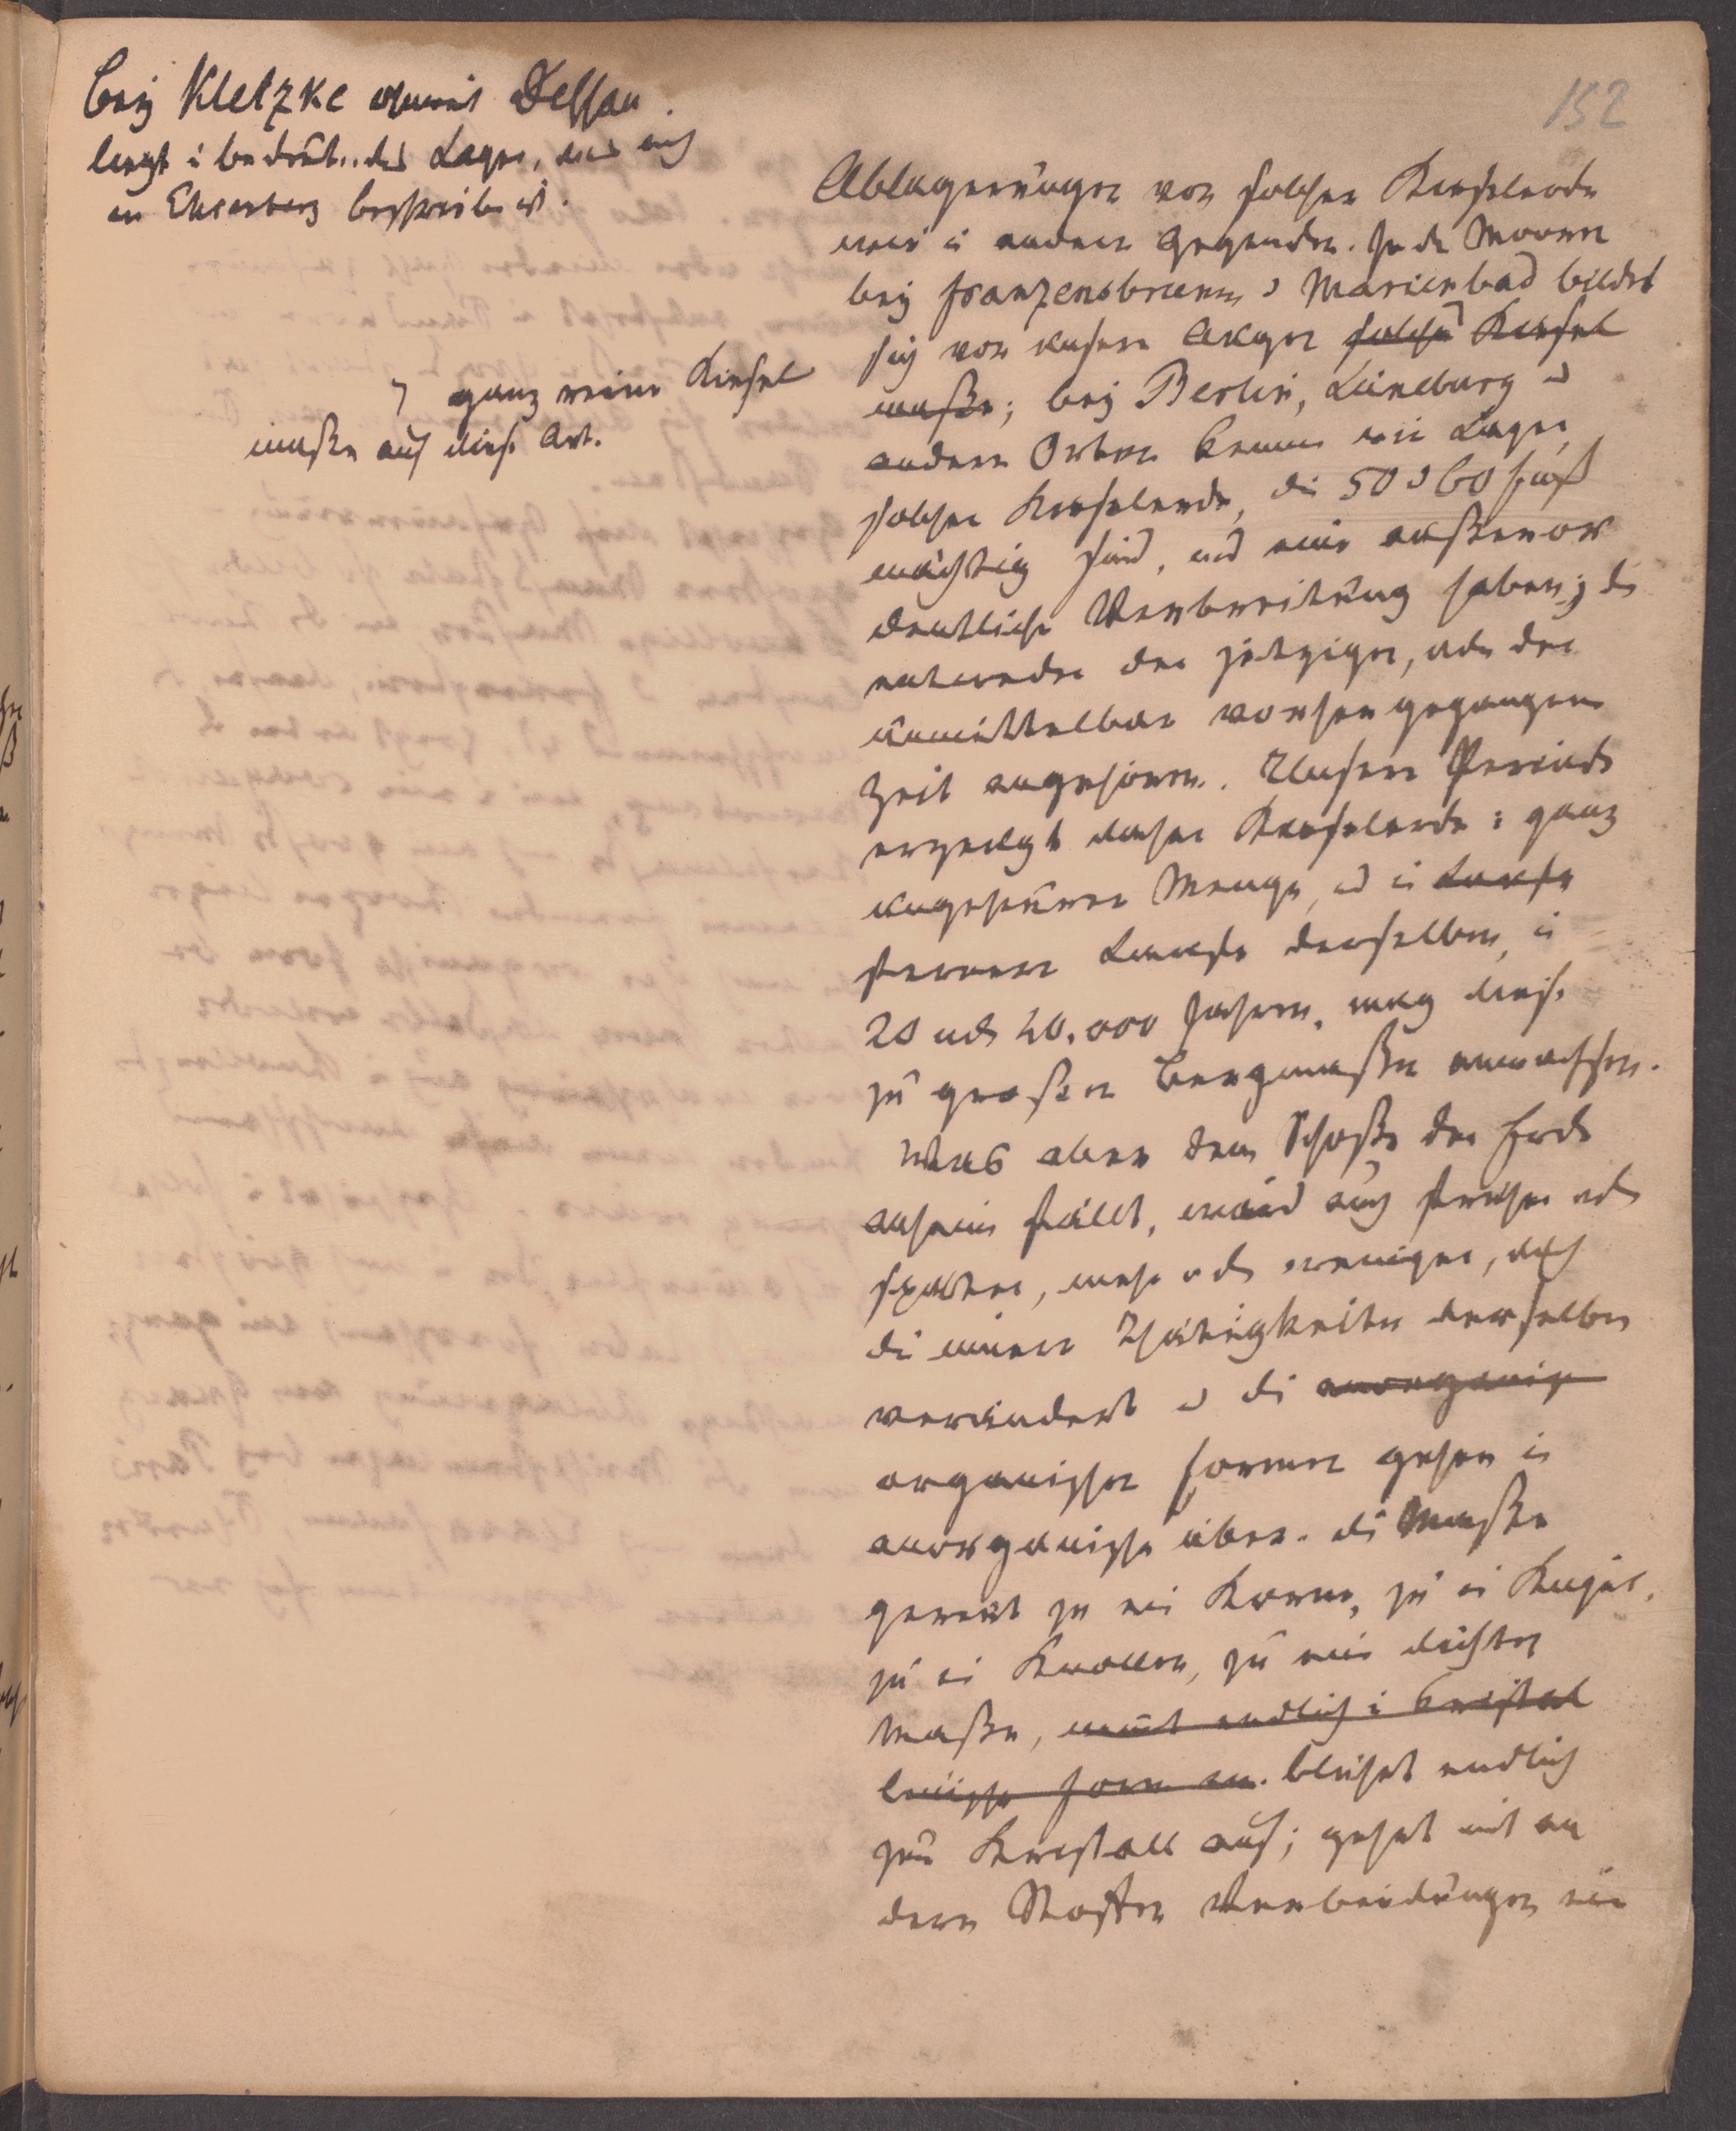 152
bey Kletzke ohnweit Dessau.
liegt i bedeut.. des Lager, das auch
an Ehrenberg beschrieben ist.
Ablagerungen von solcher Kieselerde
weis i andern Gegenden. In den Mooren
bey Franzensbrunn u Marienbad bildet
sich vor unsern Augen solche Kiesel
masse; bey Berlin, Lüneburg u
andern Orten kennen wir Lager
solcher Kieselerde, die 50 u 60 Fuß
mächtig sind, und eine außeror
dentliche Verbreitung haben; die
entweder der jetzigen, oder der
unmittelbar vorhergegangenen
Zeit angehören. Unsere Periode
erzeugt daher Kieselerde i ganz
ungeheurer Menge, und i Laufe
fernern Laufe derselben, i
20 oder 40.000 Jahren, mag diese
zu großen Bergmassen anwachsen.
Was aber dem Schoße der Erde
anheim fällt, wird auch früher oder
später, mehr oder weniger, durch
die innern Thätigkeiten derselben
verändert u die anorganisch
organischen Formen gehen in
anorganische über. die Masse
gerint zu ein Korne, zu ei Kugel,
zu ei Knollen, zu eine dichten
Masse, nimt endlich i kristal
linische Form an. blühet endlich
zum Kristall auf; gehet mit an
dern Stoffen Verbindungen ein
ganz reine Kiesel
masse auf diese Art.